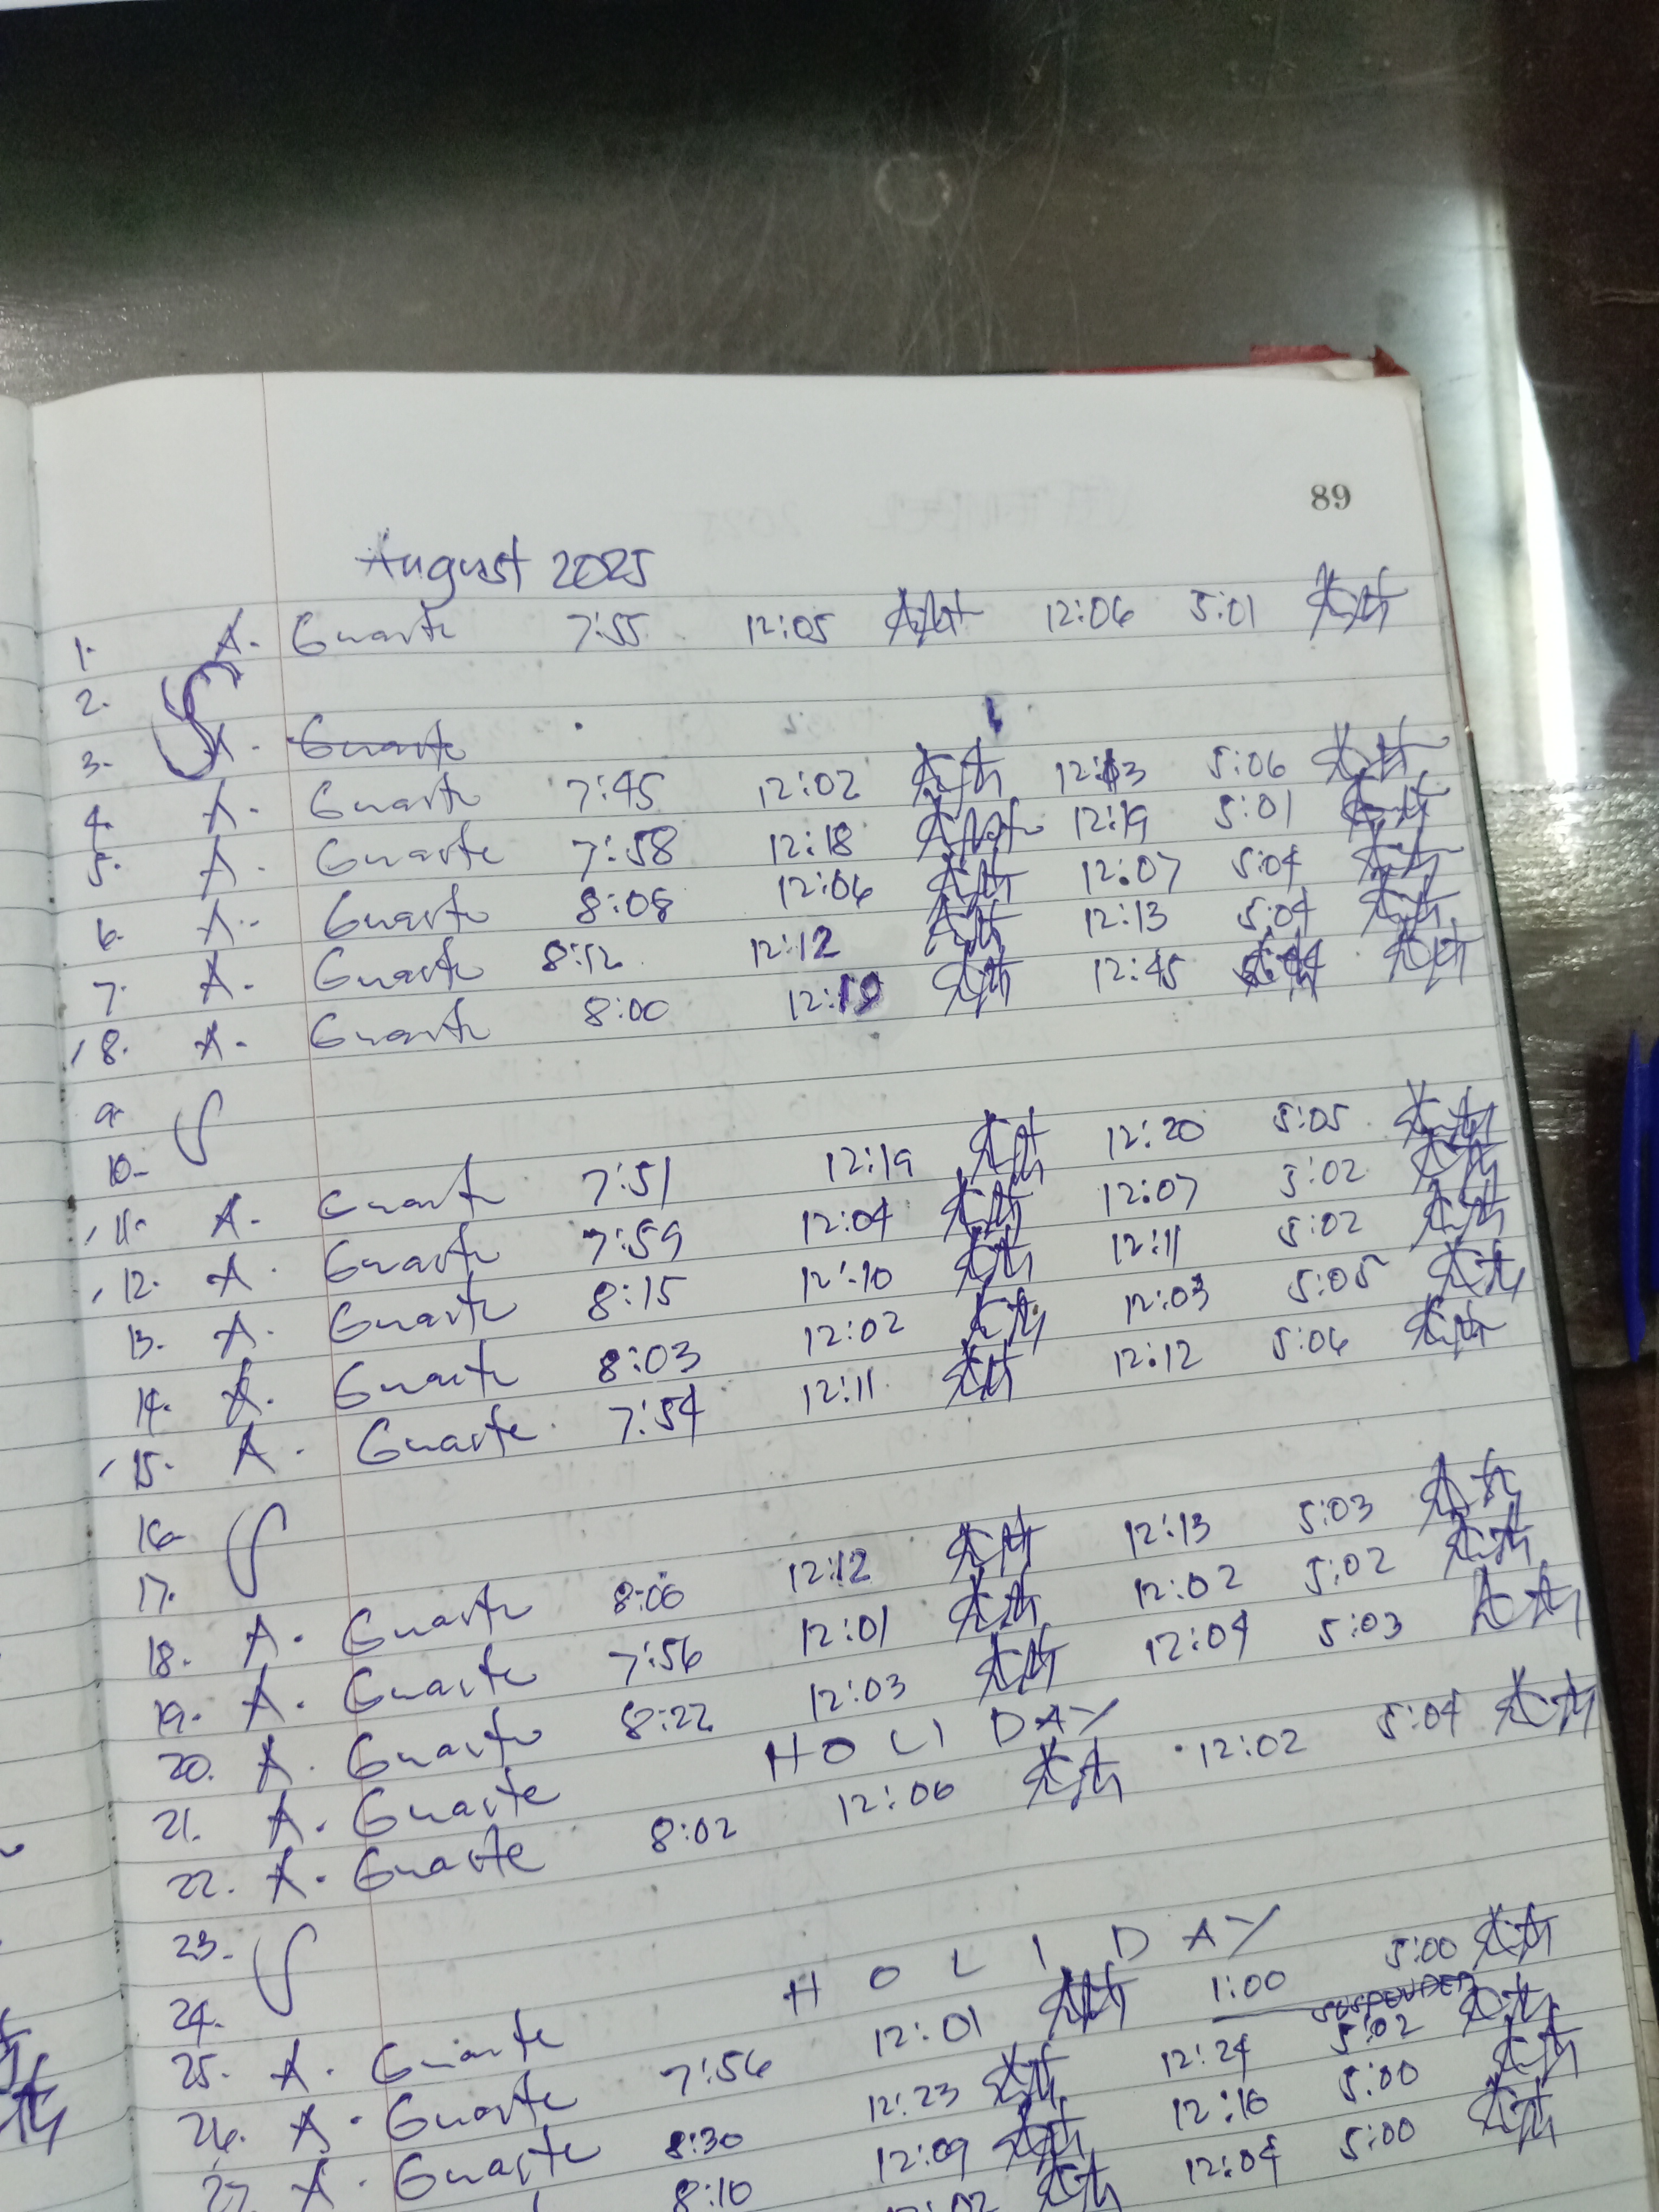 89
August 2025
1. A. Guarte 7:55 12:05 12:06 5:01
2.
3. A. Guarte
4. A. Guarte 7:45 12:02 12:03 5:06
5. A. Guarte 7:58 12:18 12:19 5:01
6. A. Guarte 8:08 12:06 12:07 5:04
7. A. Guarte 8:12 12:12 12:13 5:04
8. A. Guarte 8:00 12:19 12:45
9.
10.
11. A. Guarte 7:51 12:19 12:20 5:05
12. A. Guarte 7:59 12:04 12:07 5:02
13. A. Guarte 8:15 12:10 12:11 5:02
14. A. Guarte 8:03 12:02 12:03 5:05
15. A. Guarte 7:54 12:11 12:12 5:06
16.
17.
18. A. Guarte 8:00 12:12 12:13 5:03
19. A. Guarte 7:56 12:01 12:02 5:02
20. A. Guarte 8:22 12:03 12:04 5:03
21. A. Guarte HOLIDAY
22. A. Guarte 8:02 12:06 12:02 5:04
23.
24.
25. A. Guarte HOLIDAY
26. A. Guarte 7:56 12:01 1:00 5:00
SUSPENDED
27. A. Guarte 8:30 12:23 12:24 5:02
8:10 12:09 12:10 5:00
12:02 12:04 5:00